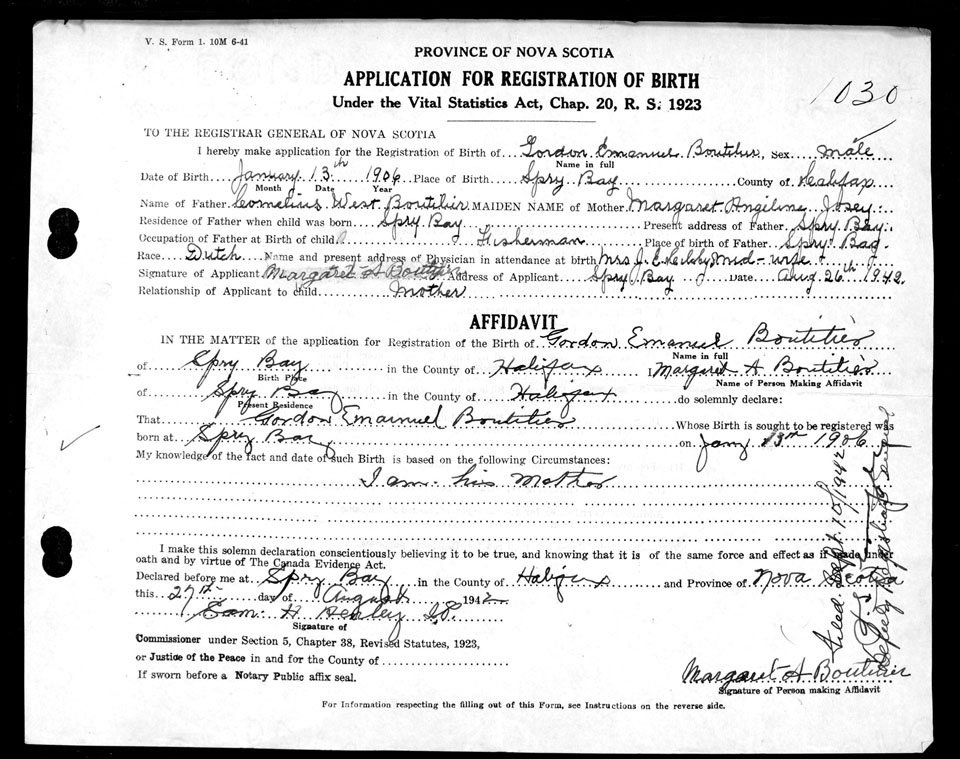 V. S. Form 1. 10M 6-41
PROVINCE OF NOVA SCOTIA
APPLICATION FOR REGISTRATION OF BIRTH
Under the Vital Statistics Act, Chap. 20, R. S. 1923
1030
TO THE REGISTRAR GENERAL OF NOVA SCOTIA
I hereby make application for the Registration of Birth of Gordon Emanuel Boutilier, Sex male
Name in full
Date of Birth January 13th 1906 Place of Birth Spry Bay County of Halifax
Month Date Year
Name of Father Cornelius West Boutilier MAIDEN NAME of Mother Margaret Angiline Josey
Residence of Father when child was born Spry Bay Present address of Father Spry Bay
Occupation of Father at Birth of child Fisherman Place of birth of Father Spry Bay
Race Dutch Name and present address of Physician in attendance at birth Mrs J. E. Mid-wife
Signature of Applicant Margaret A Boutilier Address of Applicant Spry Bay Date Aug 26th 1942.
Relationship of Applicant to child Mother
AFFIDAVIT
IN THE MATTER of the application for Registration of the Birth of Gordon Emanuel Boutilier
Name in full
of Spry Bay in the County of Halifax I Margaret A Boutilier
Birth Place
Name of Person Making Affidavit
of Spry Bay in the County of Halifax do solemnly declare:
Present Residence
That Gordon Emanuel Boutilier Whose Birth is sought to be registered was
born at Spry Bay on Jany 13th 1906
My knowledge of the fact and date of such Birth is based on the following Circumstances:
I am his Mother
I make this solemn declaration conscientiously believing it to be true, and knowing that it is of the same force and effect as if made under
oath and by virtue of The Canada Evidence Act.
Declared before me at Spry Bay in the County of Halifax and Province of Nova Scotia
this 27th day of August 1942
Sam H Henley J.P.
Signature of
Commissioner under Section 5, Chapter 38, Revised Statutes, 1923,
or Justice of the Peace in and for the County of
If sworn before a Notary Public affix seal.
Margaret A Boutilier
Signature of Person making Affidavit
For Information respecting the filling out of this Form, see Instructions on the reverse side.
Filed Sept. 10/1942
Deputy Registrar General